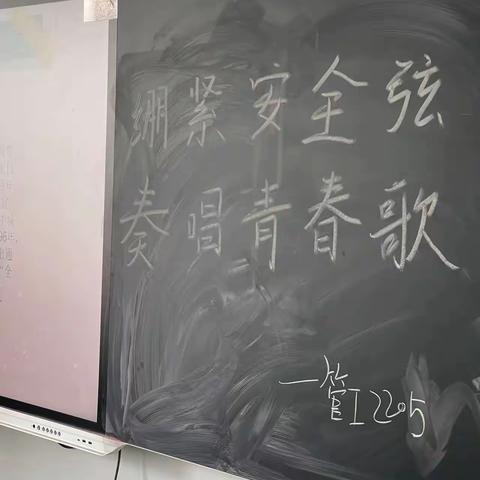 绷紧安全弦
奏唱青春歌
一管工2205